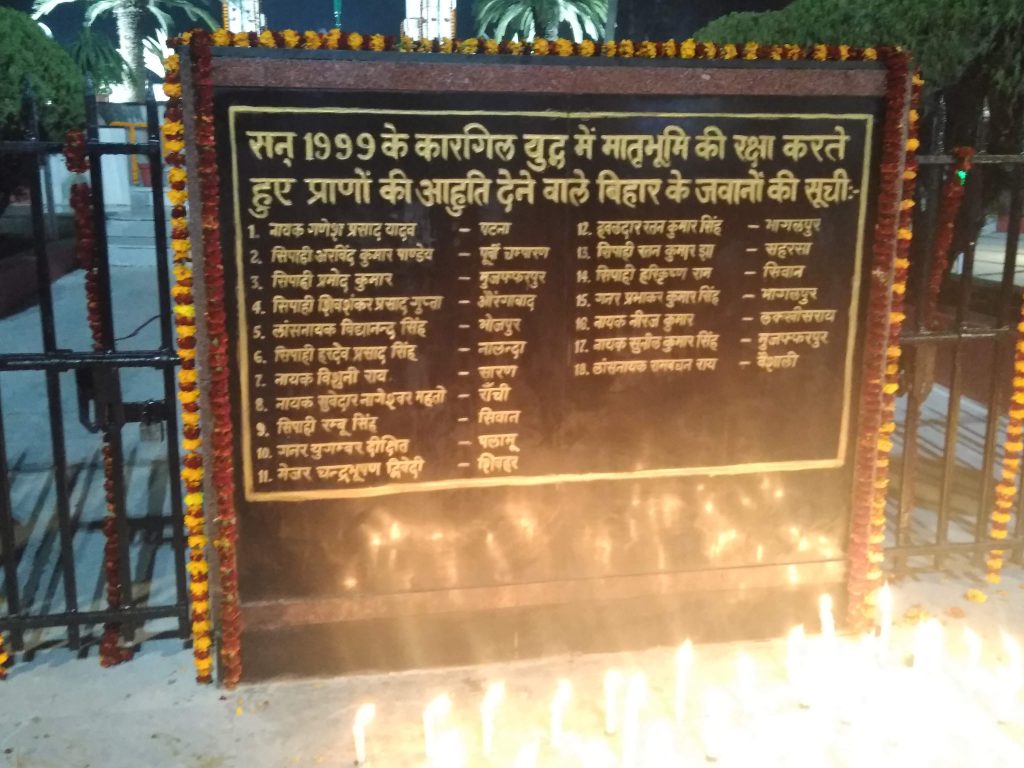 सन् 1999 के कारगिल युद्ध में मातृभूमि की रक्षा करते
हुए प्राणों की आहुति देने वाले बिहार के जवानों की सूची:-
1. नायक गणेश प्रसाद यादव - पटना
2. सिपाही अरविंद कुमार पाण्डेय - पूर्वी चम्पारण
3. सिपाही प्रमोद कुमार - मुजफ्फरपुर
4. सिपाही शिवशंकर प्रसाद गुप्ता - औरंगाबाद
5. लांसनायक विद्यानन्द सिंह - भोजपुर
6. सिपाही हरदेव प्रसाद सिंह - नालन्दा
7. नायक विशुनी राय - सारण
8. नायक सुवेदार नागेश्वर महतो - राँची
9. सिपाही रम्बू सिंह - सिवान
10. गनर युगम्बर दीक्षित - पलामू
11. मेजर चन्द्रभूषण द्विवेदी - शिवहर
12. हवलदार रतन कुमार सिंह - भागलपुर
13. सिपाही रमन कुमार झा - सहरसा
14. सिपाही हरिकृष्ण राम - सिवान
15. गनर प्रभाकर कुमार सिंह - भागलपुर
16. नायक नीरज कुमार - लक्खीसराय
17. नायक सुनील कुमार सिंह - मुजफ्फरपुर
18. लांसनायक रामबचन राय - वैशाली